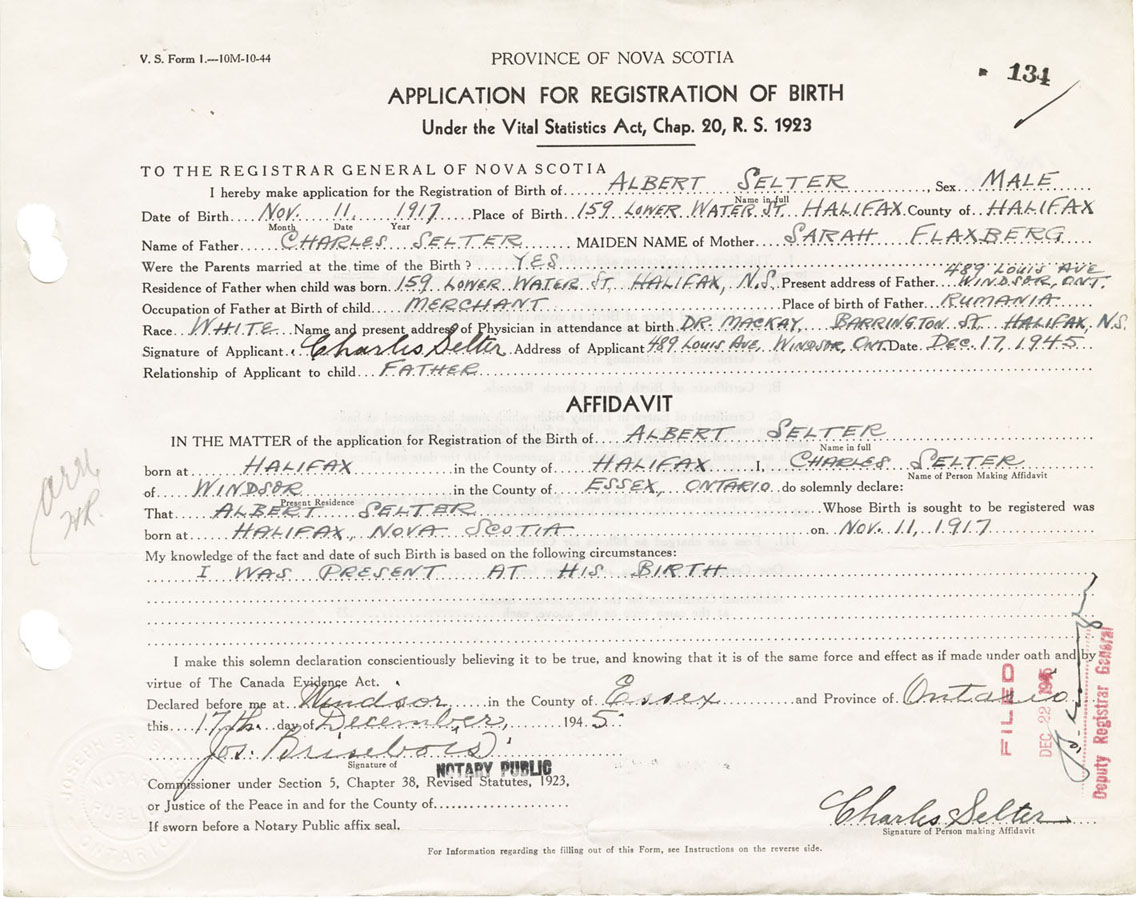 V. S. Form 1.—10M-10-44
PROVINCE OF NOVA SCOTIA
134
APPLICATION FOR REGISTRATION OF BIRTH
Under the Vital Statistics Act, Chap. 20, R. S. 1923
TO THE REGISTRAR GENERAL OF NOVA SCOTIA
I hereby make application for the Registration of Birth of ALBERT SELTER, Sex MALE
Name in full
Date of Birth NOV. 11, 1917 Place of Birth 159 LOWER WATER ST. HALIFAX. County of HALIFAX
Month Date Year
Name of Father CHARLES SELTER MAIDEN NAME of Mother SARAH FLAXBERG
Were the Parents married at the time of the Birth? YES
489 LOUIS AVE
Residence of Father when child was born. 159 LOWER WATER ST. HALIFAX, N.S. Present address of Father WINDSOR, ONT.
Occupation of Father at Birth of child. MERCHANT Place of birth of Father RUMANIA
Race WHITE Name and present address of Physician in attendance at birth DR. MACKAY, BARRINGTON ST. HALIFAX, N.S.
Signature of Applicant Charles Selter Address of Applicant 489 LOUIS AVE, WINDSOR, ONT. Date DEC. 17, 1945
Relationship of Applicant to child FATHER
AFFIDAVIT
IN THE MATTER of the application for Registration of the Birth of ALBERT SELTER
Name in full
born at HALIFAX in the County of HALIFAX I, CHARLES SELTER
Name of Person Making Affidavit
of WINDSOR in the County of ESSEX, ONTARIO do solemnly declare:
Present Residence
That ALBERT SELTER Whose Birth is sought to be registered was
born at HALIFAX, NOVA SCOTIA on NOV. 11, 1917
My knowledge of the fact and date of such Birth is based on the following circumstances:
I WAS PRESENT AT HIS BIRTH
I make this solemn declaration conscientiously believing it to be true, and knowing that it is of the same force and effect as if made under oath and by
virtue of The Canada Evidence Act.
Declared before me at Windsor in the County of Essex and Province of Ontario
this 17th day of December, 1945
Jos. Brisebois
Signature of
NOTARY PUBLIC
Commissioner under Section 5, Chapter 38, Revised Statutes, 1923,
or Justice of the Peace in and for the County of
If sworn before a Notary Public affix seal.
Charles Selter
Signature of Person making Affidavit
FILED
DEC 22 1945
Deputy Registrar General
For Information regarding the filling out of this Form, see Instructions on the reverse side.